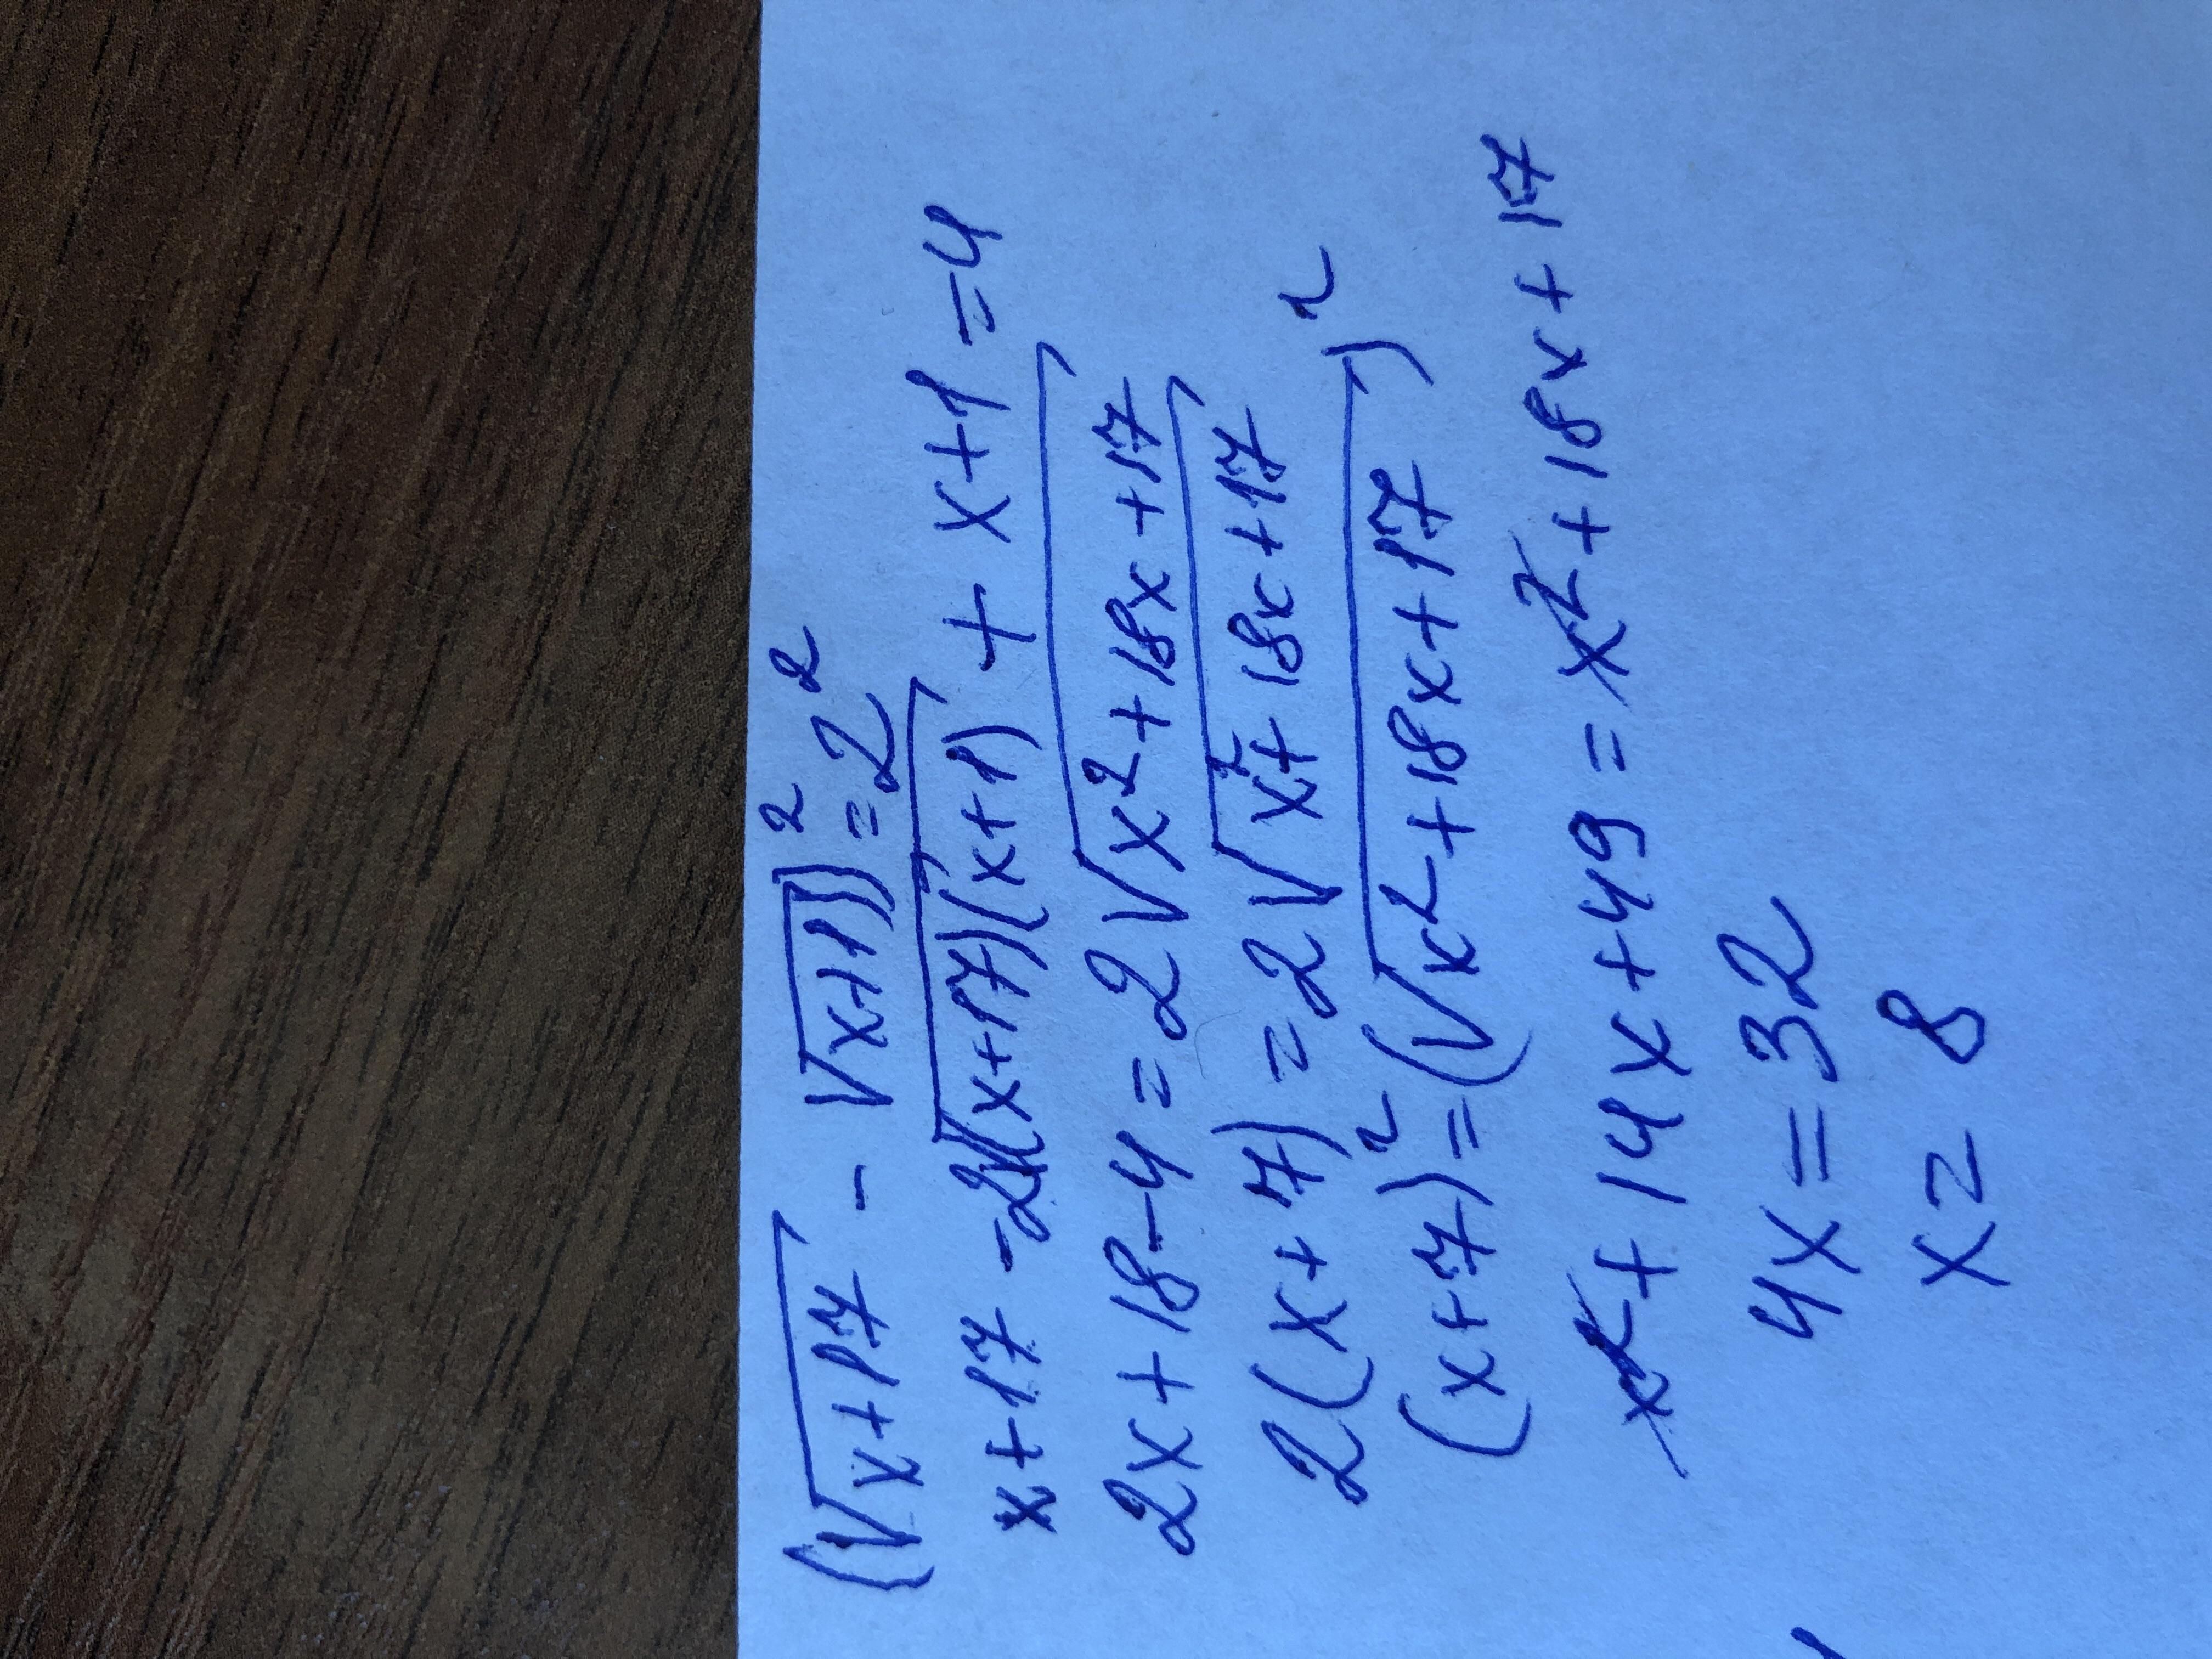 (√(x+17) - √(x+1))² = 2²
x+17 - 2√((x+17)(x+1)) + x+1 = 4
2x+18-4 = 2√(x²+18x+17)
2(x+7) = 2√(x²+18x+17)
(x+7)² = (√(x²+18x+17))²
x²+14x+49 = x²+18x+17
4x = 32
x = 8